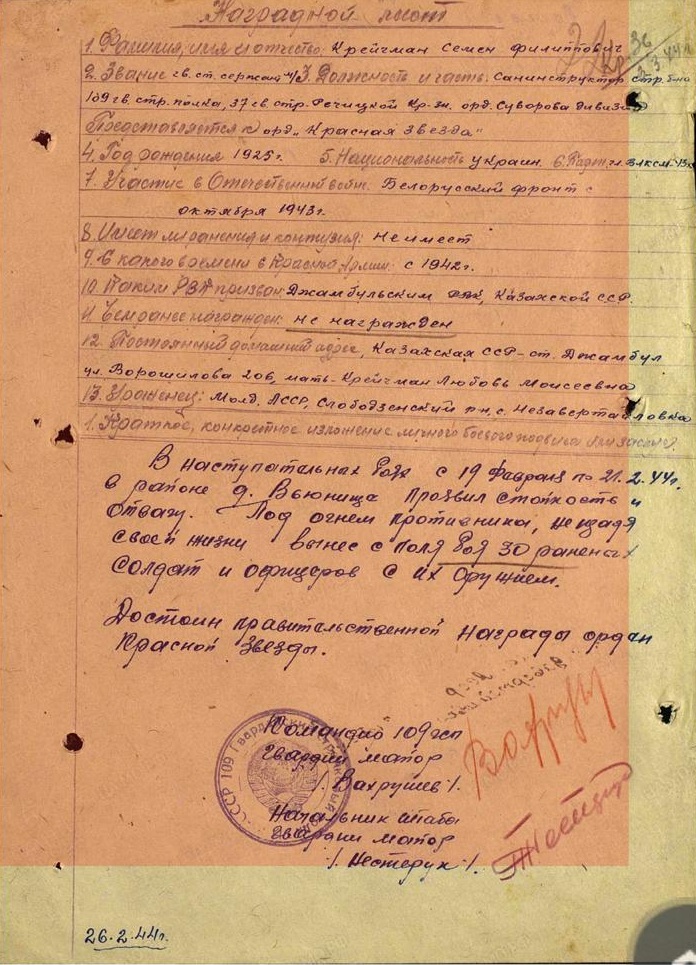 Наградной лист
1. Фамилия, имя и отчество: Крейчман Семен Филиппович
2. Звание гв. ст. сержант 3. Должность и часть: Санинструктор стр. б-на
109 гв. стр. полка, 37 гв. стр. Речицкой Кр-зн. орд. Суворова дивизии
Представляется к орд. „Красная звезда"
4. Год рождения 1925г. 5. Национальность украин. 6. Парт. чл. ВЛКСМ-43г.
7. Участие в Отечественной войне: Белорусский фронт с
октября 1943г.
8. Имеет ли ранения и контузии: не имеет
9. С какого времени в Красной Армии с 1942г.
10. Каким РВК призван: Джамбульским РВК, Казахской ССР.
11. Чем ранее награжден: не награжден
12. Постоянный домашний адрес, Казахская ССР - ст. Джамбул
ул. Ворошилова 206, мать-Крейчман Любовь Моисеевна
13. Уроженец: Молд. АССР, Слободзенский рн, с. Незавертайловка
1. Краткое, конкретное изложение личного боевого подвига или заслуг.
В наступательных боях с 19 февраля по 21.2.44г.
в районе д. Вьюнища проявил стойкость и
отвагу. Под огнем противника, не щадя
своей жизни вынес с поля боя 30 раненых
солдат и офицеров с их оружием.
Достоин правительственной награды орден
Красной Звезды.
Командир 109 гсп
гвардии майор
/. Вахрушев /.
Начальник штаба
гвардии майор
/. Нестерук /.
СССР 109 Гвардейский Стрелковый полк
26.2.44г.